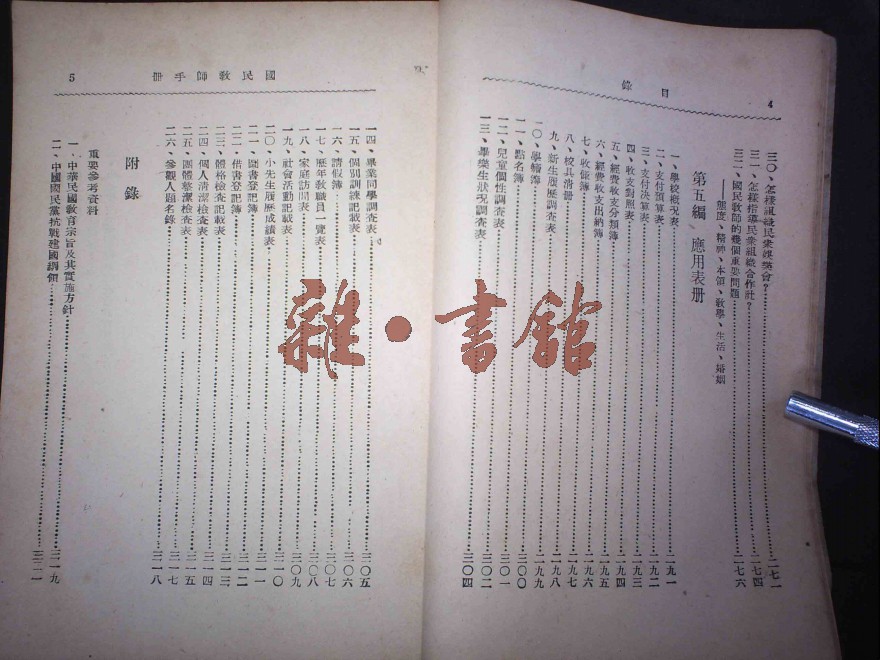 目錄
4
三〇、怎樣組織民眾娛樂會?……二七一
三一、怎樣指導民眾組織合作社?……二七四
三二、國民教師的幾個重要問題……二七六
——態度、精神、本領、教學、生活、婚姻
第五編 應用表册
一、學校概況表……二九一
二、支付預算表……二九二
三、支付決算表……二九三
四、收支對照表……二九四
五、經費收支分類簿……二九五
六、經費收支出納簿……二九六
七、收據簿……二九六
八、校具清冊……二九七
九、新生履歷調查表……二九八
一〇、學籍簿……二九九
一一、點名簿……三〇〇
一二、兒童個性調查表……三〇一
一三、畢業生狀況調查表……三〇四
國民教師手冊
5
一四、畢業同學調查表……三〇五
一五、個別訓練記載表……三〇六
一六、請假簿……三〇七
一七、歷年教職員一覽表……三〇八
一八、家庭訪問表……三〇九
一九、社會活動記載表……三一〇
二〇、小先生履歷成績表……三一〇
二一、圖書登記簿……三一一
二二、借書登記簿……三一二
二三、體格檢查記載表……三一三
二四、個人清潔檢查表……三一四
二五、團體整潔檢查表……三一五
二六、參觀人題名錄……三一八
附錄
重要參考資料
一、中華民國教育宗旨及其實施方針……三一九
二、中國國民黨抗戰建國綱領……三二一
雜·書館